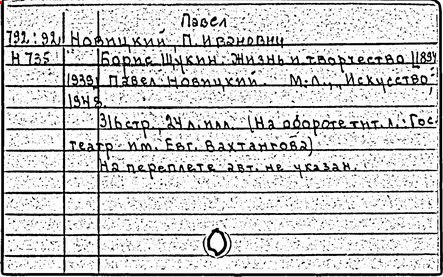 Павел
792:92 Новицкий, П. Ивановиц
Н 735 Борис Щукин. Жизнь и творчество /1894
1939/ Павел Новицкий. М.Л., "Искусство",
1948.
316 стр., 24 л. илл. (На обороте тит. л.: Гос.
театр им. Евг. Вахтангова)
На переплете авт. не указан.